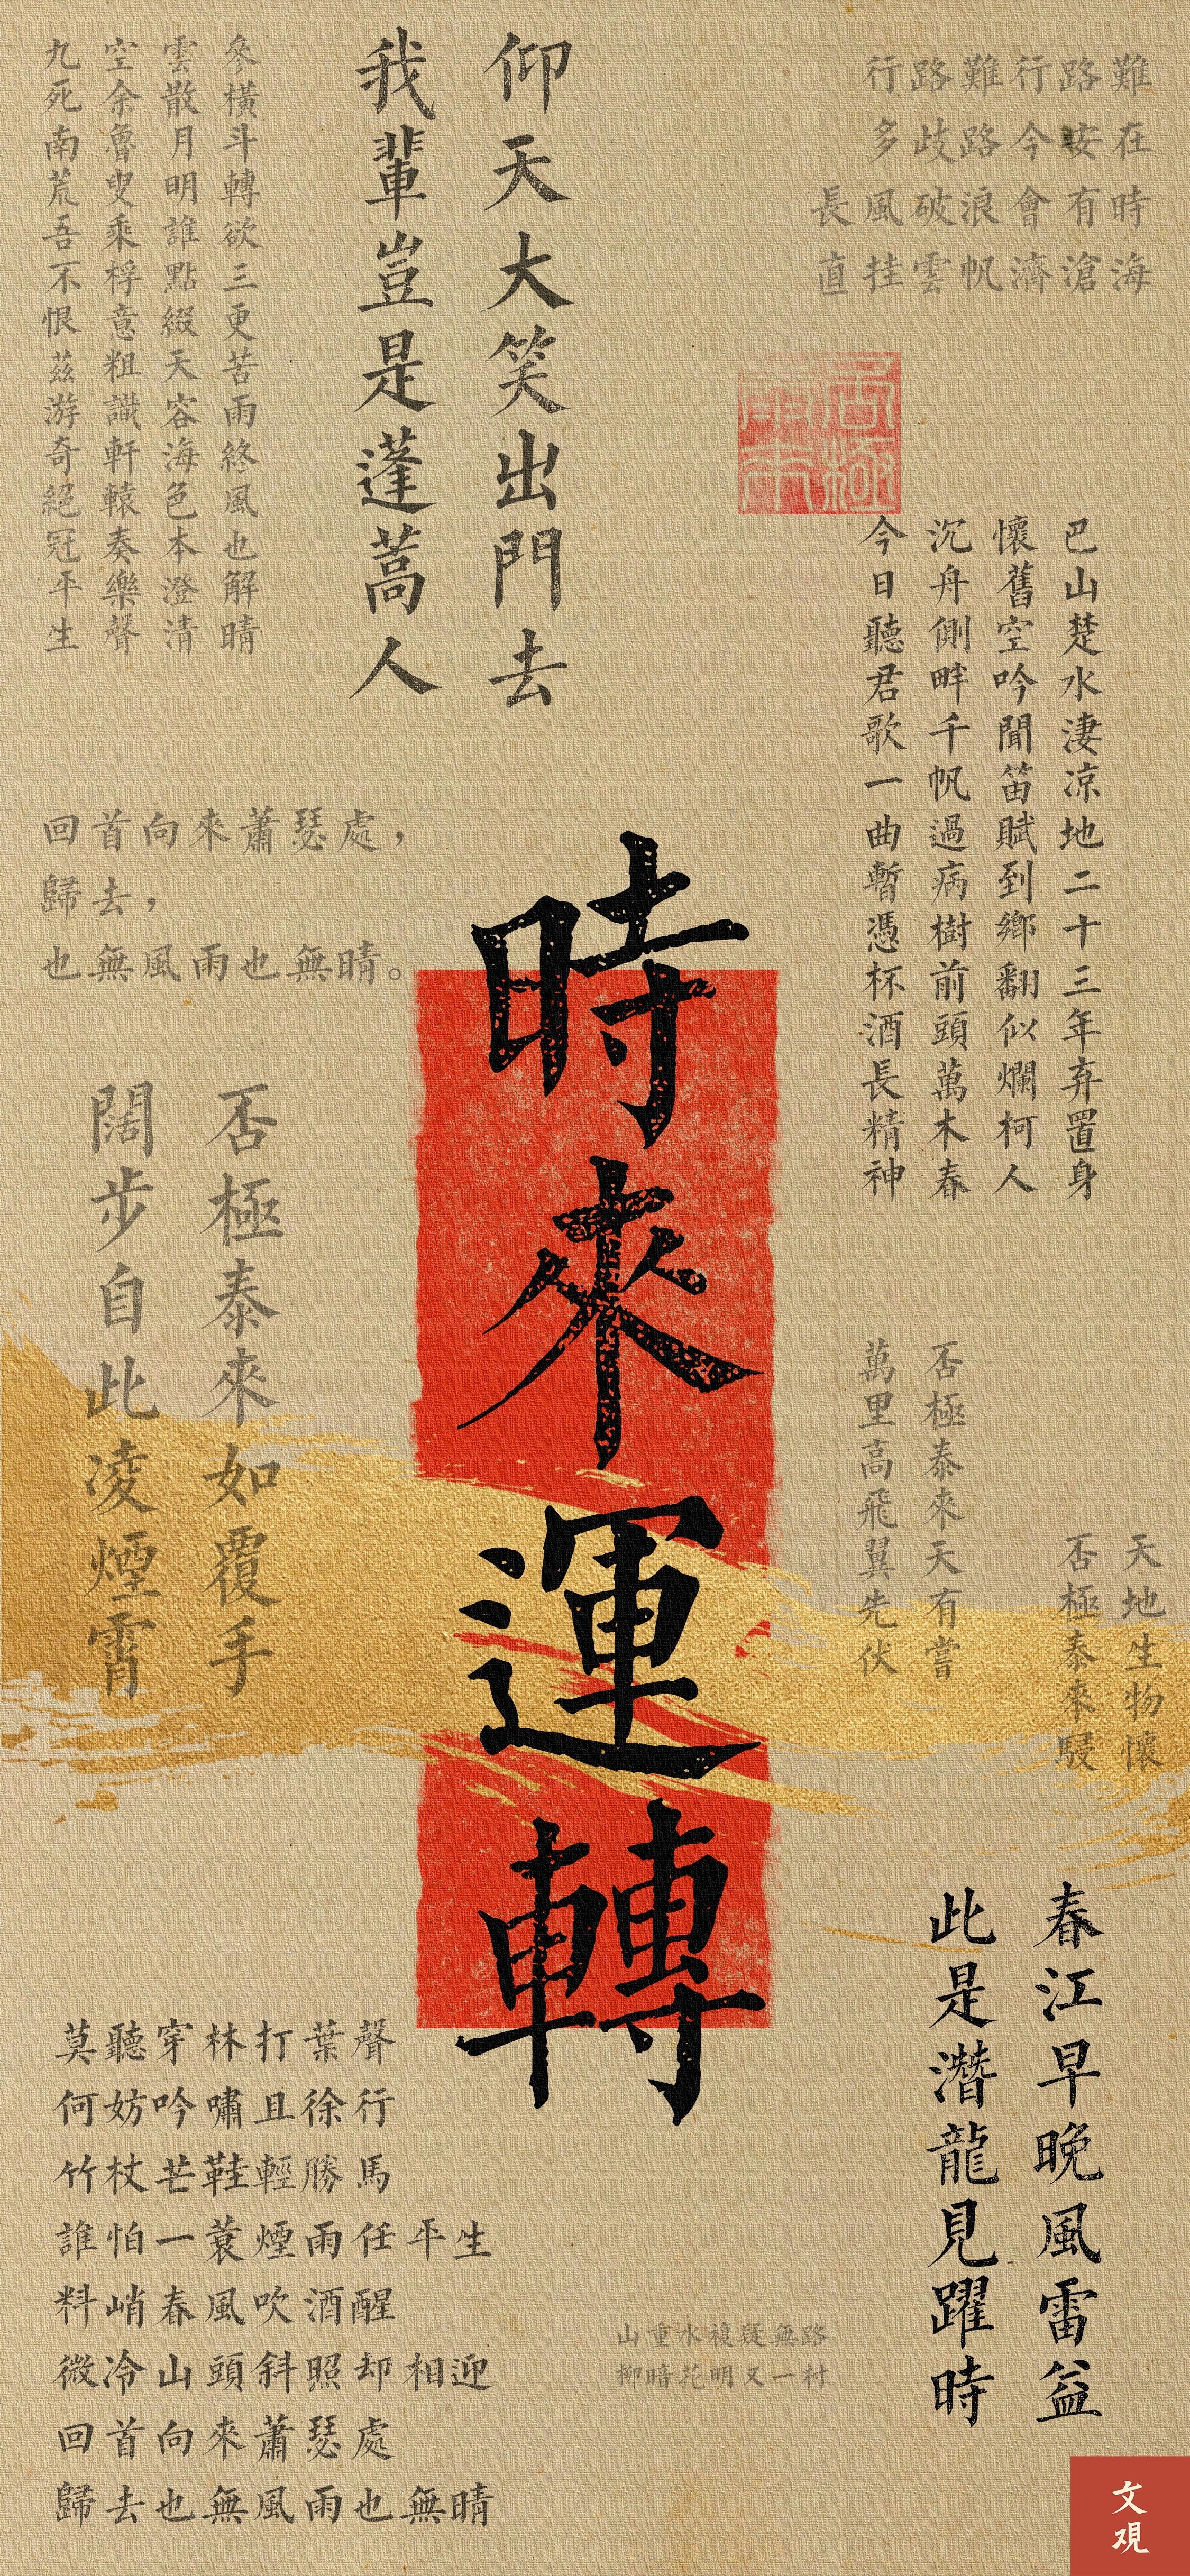 行路難行路難
多歧路今安在
長風破浪會有時
直挂雲帆濟滄海
仰天大笑出門去
我輩豈是蓬蒿人
參橫斗轉欲三更苦雨終風也解晴
雲散月明誰點綴天容海色本澄清
空余魯叟乘桴意粗識軒轅奏樂聲
九死南荒吾不恨茲游奇絕冠平生
巴山楚水淒涼地二十三年弃置身
懷舊空吟聞笛賦到鄉翻似爛柯人
沉舟側畔千帆過病樹前頭萬木春
今日聽君歌一曲暫憑杯酒長精神
回首向來蕭瑟處，
歸去，
也無風雨也無晴。
時來運轉
否極泰來如覆手
闊步自此凌煙霄
天地生物懷
否極泰來駸
否極泰來天有嘗
萬里高飛翼先伏
春江早晚風雷益
此是潛龍見躍時
莫聽穿林打葉聲
何妨吟嘯且徐行
竹杖芒鞋輕勝馬
誰怕一蓑煙雨任平生
料峭春風吹酒醒
微冷山頭斜照却相迎
回首向來蕭瑟處
歸去也無風雨也無晴
山重水複疑無路
柳暗花明又一村
文观